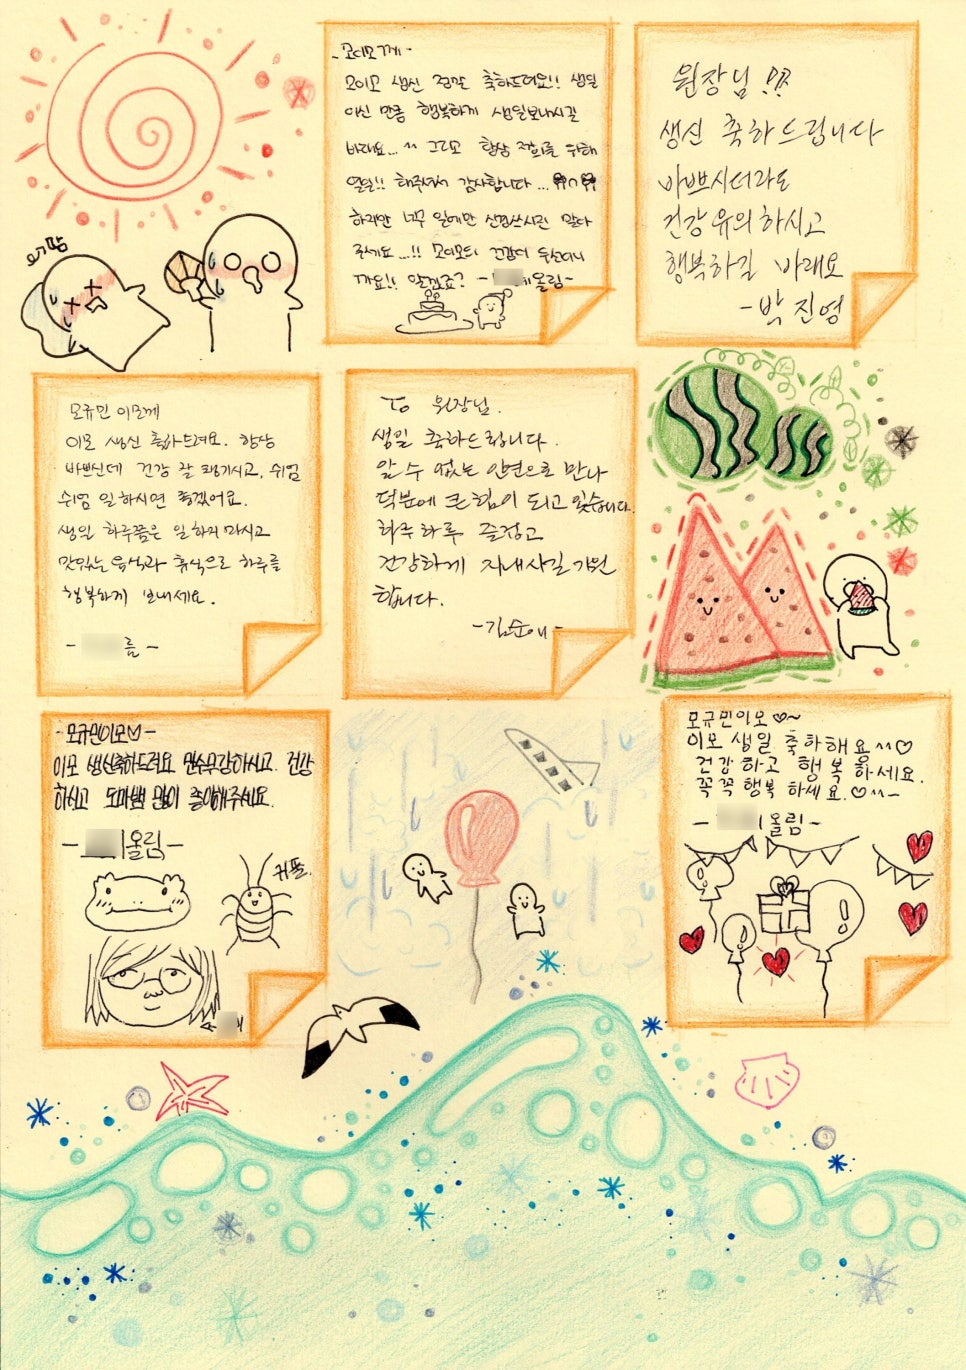 -모이모께-
모이모 생신 정말 축하드려요!! 생일
이신 만큼 행복하게 생일보내시길
바래요...^^ 그리고 항상 저희를 위해
열일!! 해주셔서 감사합니다...
하지만 너무 일에만 신경쓰시진 말아
주세요...!! 모이모의 건강이 우선이니
까요!! 알겠죠? - 올림-
원장님!!
생신 축하드립니다
바쁘시더라도
건강유의하시고
행복하길 바래요
-박진영
요기땀
모규민 이모께
이모 생신 축하드려요. 항상
바쁘신데 건강 잘 챙기시고, 쉬엄
쉬엄 일하시면 좋겠어요.
생일 하루쯤은 일하지 마시고
맛있는 음식과 휴식으로 하루를
행복하게 보내세요.
- 름 -
To 원장님.
생일 축하드립니다.
알 수 없는 인연으로 만나
덕분에 큰 힘이 되고 있습니다.
하루하루 즐겁고
건강하게 지내시길 기원
합니다.
-김순애-
-모규민이모♡-
이모 생신축하드려요 만수무강하시고 건강
하시고 도마뱀 많이 좋아해주세요.
- 올림-
귀뚤.
모규민이모♡~
이모 생일 축하해요^^♡
건강하고 행복하세요.
꼭꼭 행복 하세요.♡^^~
- 올림-